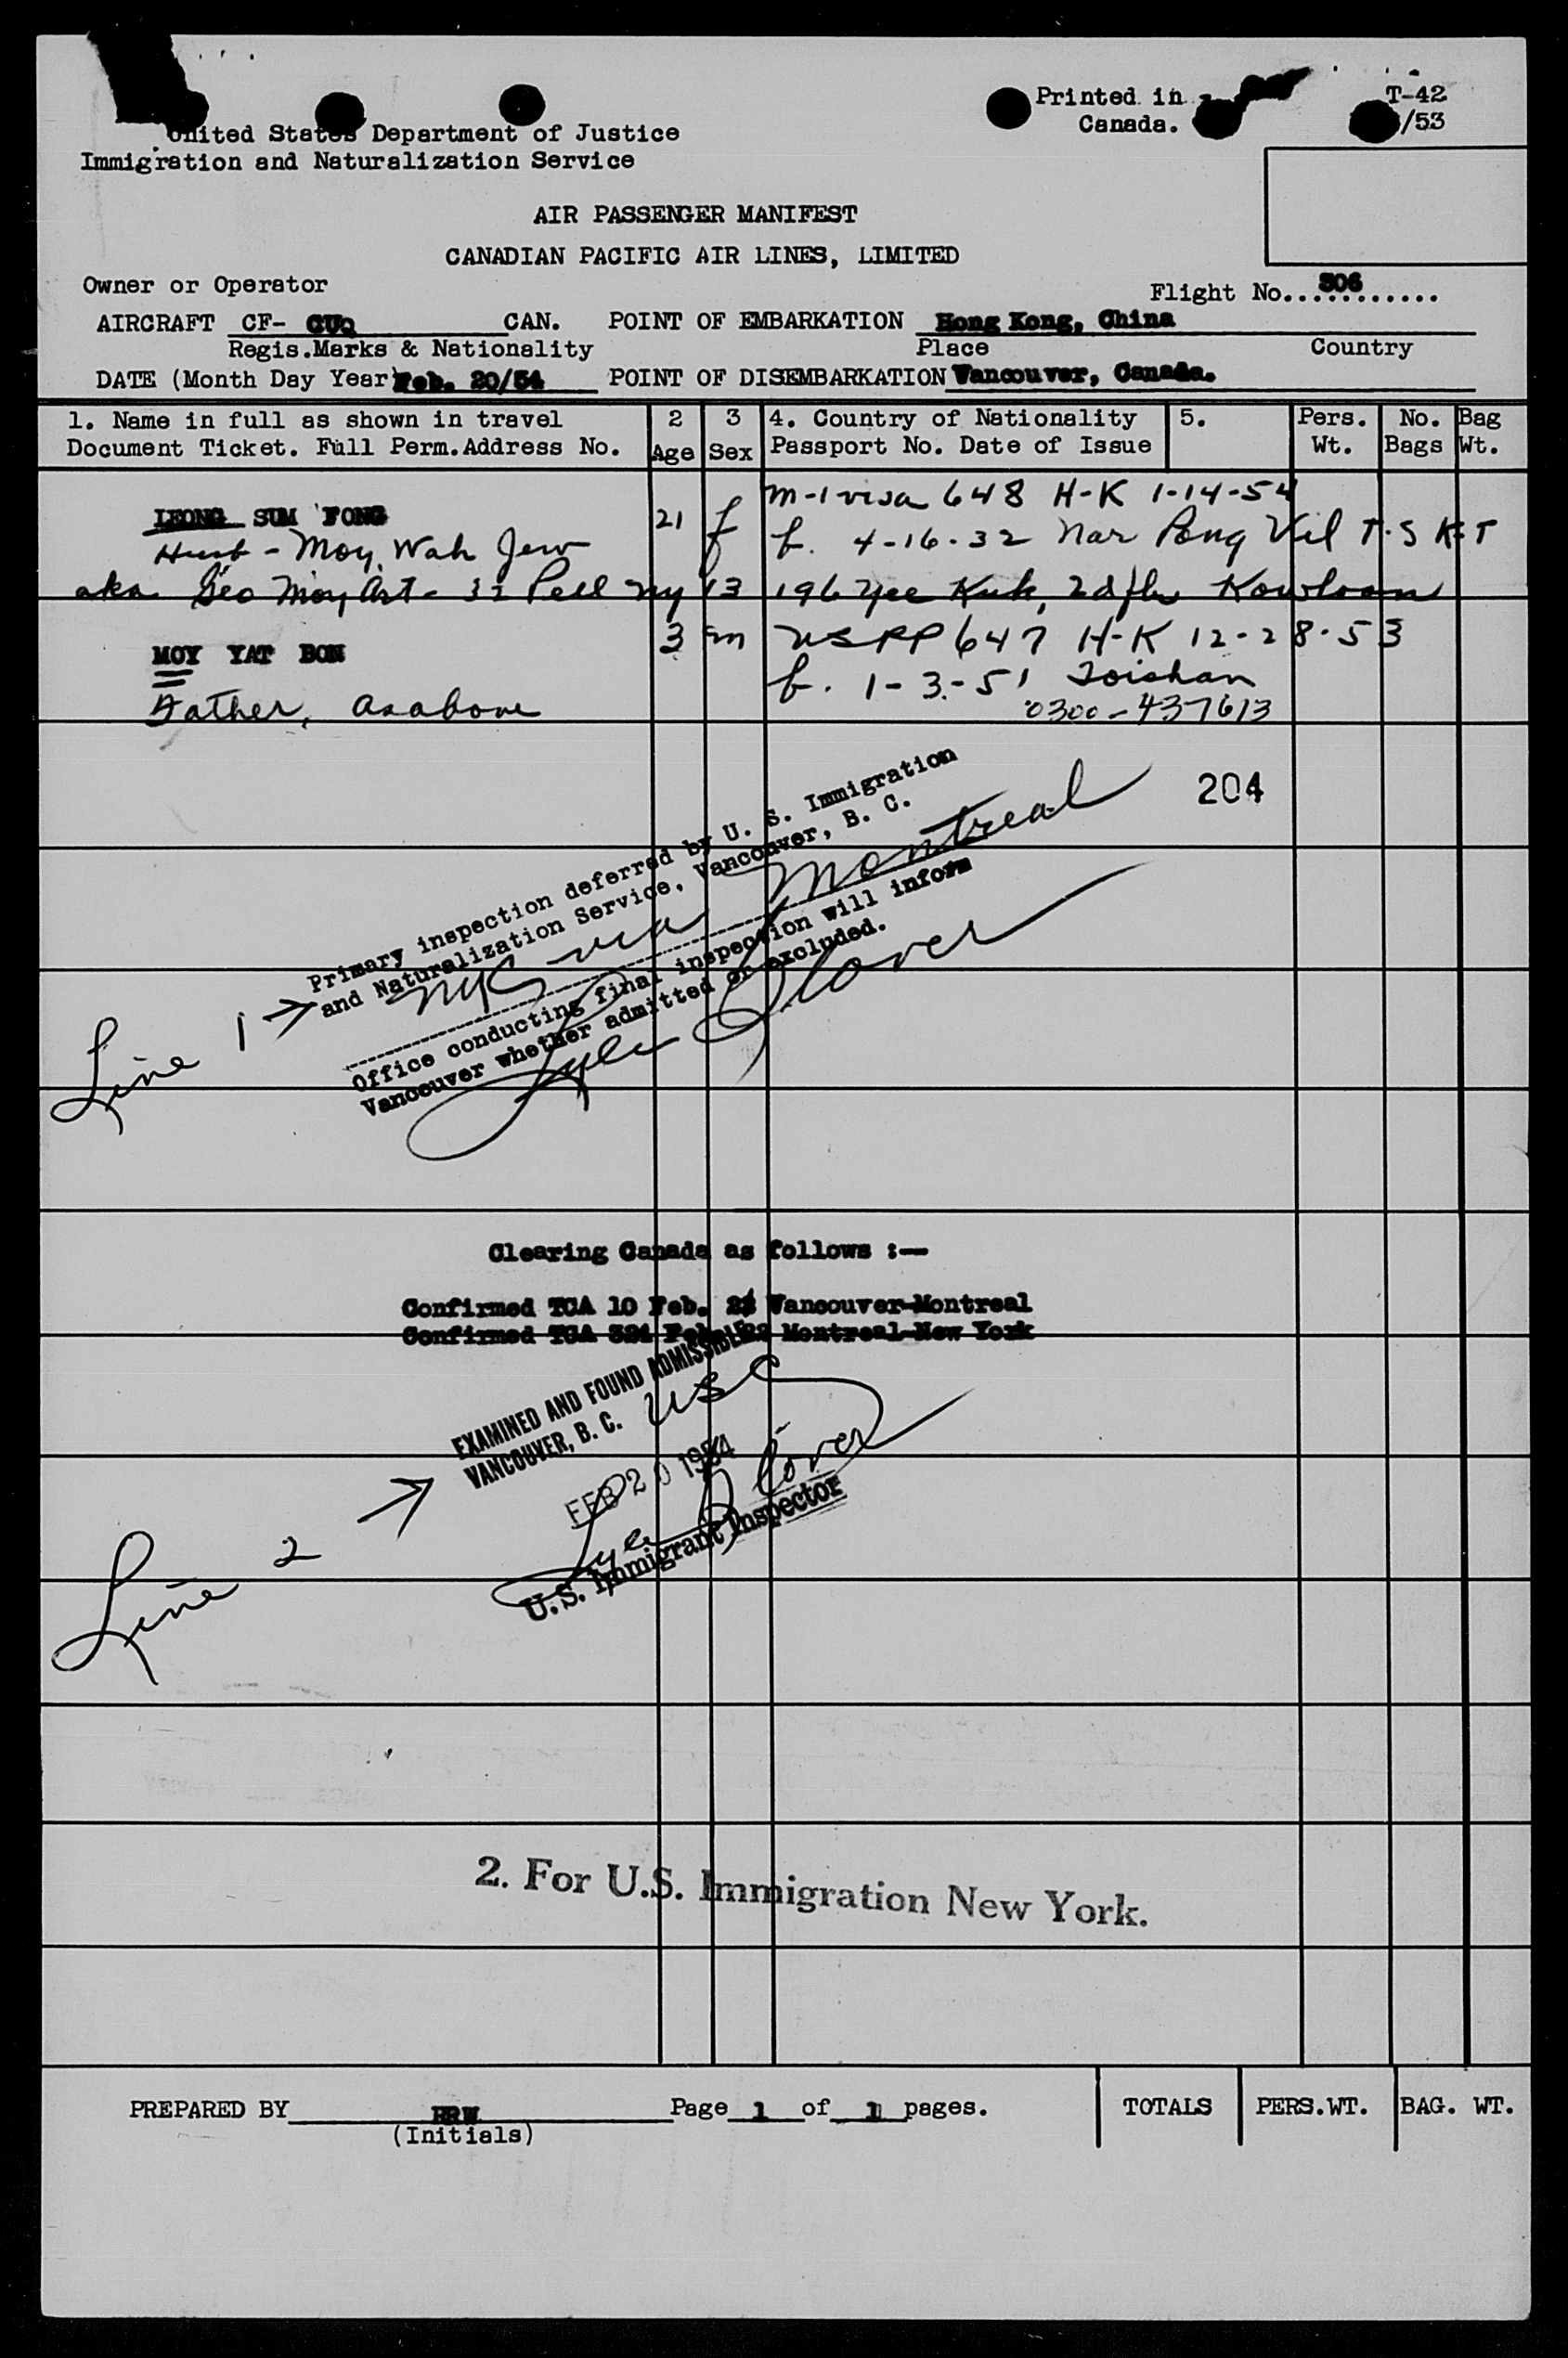 Printed in T-42
Canada. /53
United States Department of Justice
Immigration and Naturalization Service
AIR PASSENGER MANIFEST
CANADIAN PACIFIC AIR LINES, LIMITED
Owner or Operator Flight No...306...........
AIRCRAFT CF- CUQ CAN. POINT OF EMBARKATION Hong Kong, China
Regis.Marks & Nationality Place Country
DATE (Month Day Year) Feb. 20/54 POINT OF DISEMBARKATION Vancouver, Canada.
1. Name in full as shown in travel 2 3 4. Country of Nationality 5. Pers. No. Bag
Document Ticket. Full Perm.Address No. Age Sex Passport No. Date of Issue Wt. Bags Wt.
M-1 visa 648 H-K 1-14-54
LEONG SUM FONG 21 f
Husb - Moy, Wah Jew b. 4-16-32 Nar Pong Vil T.S K.T
aka Geo Moy Art - 32 Pell NY 13 196 Yee Kuk, 2d flr Kowloon
MOY YAT BON 3 m USPP 647 H-K 12-28-53
b. 1-3-51 Toishan
Father, as above 0300-437613
204
Primary inspection deferred by U. S. Immigration
and Naturalization Service, Vancouver, B. C.
NYC via Montreal
Office conducting final inspection will inform
Vancouver whether admitted or excluded.
Lyle Glover
Line 1 →
Clearing Canada as follows :—
Confirmed TCA 10 Feb. Vancouver-Montreal
Confirmed TCA 321 Feb. 22 Montreal-New York
EXAMINED AND FOUND ADMISSIBLE
VANCOUVER, B. C. USC
FEB 20 1954
Lyle Glover
U.S. Immigrant Inspector
Line 2 →
2. For U.S. Immigration New York.
PREPARED BY Page 1 of 1 pages. TOTALS PERS.WT. BAG. WT.
(Initials)